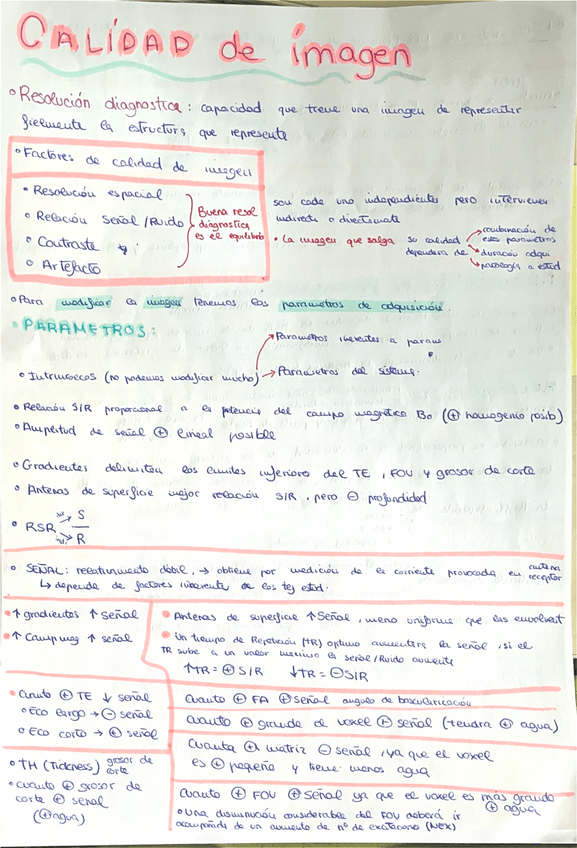 CALIDAD de imagen
• Resolución diagnostica: capacidad que tiene una imagen de representar
fielmente la estructura que represente
• Factores de calidad de imagen
• Resolución espacial
• Relación Señal/Ruido
• Contraste
• Artefacto
Buena resol
diagnostica
es el equilibrio
son cada uno independientes pero intervienen
indirecta o directamente
• La imagen que salga su calidad
dependera de
combinación de
esos parametros
duración adqui
patología a estud
• Para modificar la imagen tenemos los parametros de adquisición.
• PARAMETROS:
• Intrinsecos (no podemos modificar mucho)
Parametros inherentes a param
Parametros del sistema.
• Relación S/R proporcional a la potencia del campo magnético B0 (⊕ homogenio posib)
• Amplitud de señal ⊕ lineal posible
• Gradientes delimitan los limites inferiores del TE, FOV y grosor de corte
• Antenas de superficie mejor relación S/R, pero ⊖ profundidad
• RSR
S
R
• SEÑAL: relativamente débil, → obtiene por medición de la corriente provocada en antena
receptor
↳ depende de factores inherente de los tej estud.
• ↑ gradientes ↑ señal
• ↑ Camp mag ↑ señal
• Antenas de superficie ↑ Señal, meno uniforme que las envolvent
• Un tiempo de Repetición (TR) optimo aumentara la señal, si el
TR sube a un valor maximo la señal/Ruido aumente
↑TR = ⊕ S/R ↓TR = ⊖ S/R
• Cuanto ⊕ TE ↓ señal
• Eco largo → ⊖ señal
• Eco corto → ⊕ señal
Cuanto ⊕ FA ⊕ señal angulo de basculización
Cuanto ⊕ grande el voxel ⊕ señal (tendra ⊕ agua)
Cuanta ⊕ matriz ⊖ señal, ya que el voxel
es ⊕ pequeño y tiene menos agua
• TH (Tickness) grosor de
corte
• cuanto ⊕ grosor de
corte ⊕ señal
(⊕ agua)
Cuanto ⊕ FOV ⊕ señal ya que el voxel es más grande
⊕ agua
• Una disminución considerable del FOV deberá ir
acompañada de un aumento de nº de excitaciono (NEX)